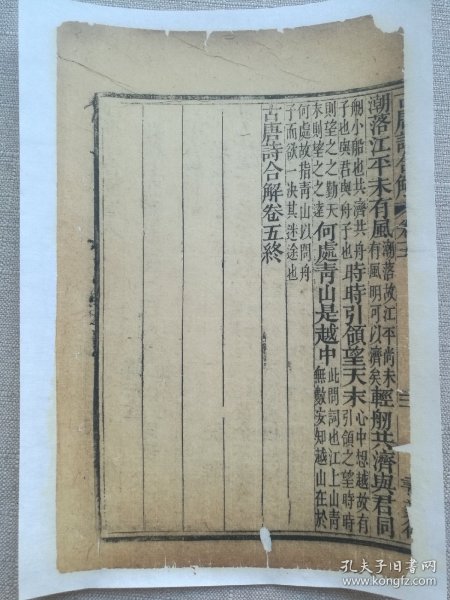 潮落江平未有風潮落故江平尚未有風明可以濟矣輕舠共濟與君同
舠小船也共濟共舟子也與君與舟子也時時引領望天末心中想越故有引領之望時時
則望之之勤天末則望之之遠何處青山是越中此問詞也江上山青無數安知越山在於
何處故指青山以問舟子而欲一決其迷途也
古唐詩合解卷五終
孔夫子旧书网
www.kongfz.com